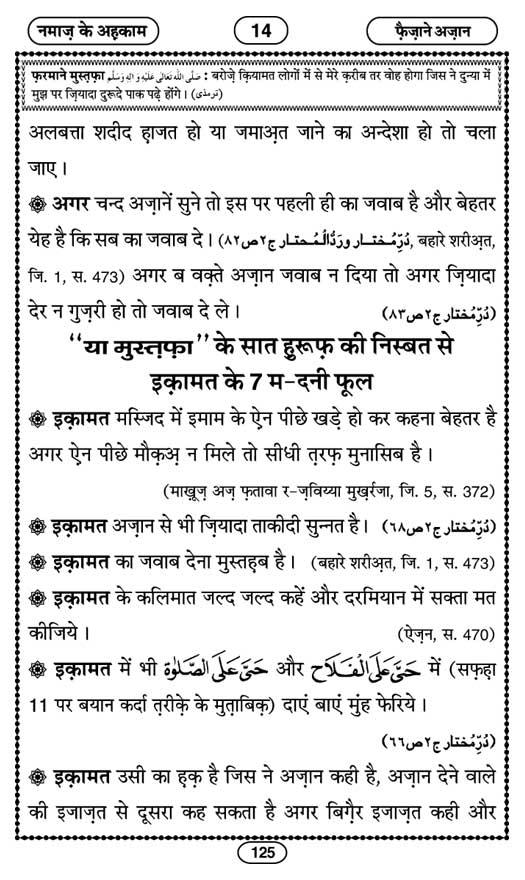 नमाज़ के अहकाम
14
फ़ैज़ाने अज़ान
फ़रमाने मुस्तफ़ा صَلَّى اللّٰه تَعَالٰى عَلَيْهِ وَاٰلِهٖ وَسَلَّم : बरोज़े क़ियामत लोगों में से मेरे क़रीब तर वोह होगा जिस ने दुन्या में
मुझ पर ज़ियादा दुरूदे पाक पढ़े होंगे। (ترمذی)
अलबत्ता शदीद हाजत हो या जमाअ़त जाने का अन्देशा हो तो चला
जाए।
अगर चन्द अज़ानें सुने तो इस पर पहली ही का जवाब है और बेहतर
येह है कि सब का जवाब दे। (دُرِّمُختار وردُّالْمُحتار ج٢ص٨٢, बहारे शरीअ़त,
जि. 1, स. 473) अगर ब वक़्ते अज़ान जवाब न दिया तो अगर ज़ियादा
देर न गुज़री हो तो जवाब दे ले। (دُرِّمُختار ج٢ص٨٣)
“या मुस्त़फ़ा” के सात हुरूफ़ की निस्बत से
इक़ामत के 7 म-दनी फूल
इक़ामत मस्जिद में इमाम के ऐन पीछे खड़े हो कर कहना बेहतर है
अगर ऐन पीछे मौक़अ़ न मिले तो सीधी त़रफ़ मुनासिब है।
(माख़ूज़ अज़ फ़तावा र-ज़विय्या मुख़र्रजा, जि. 5, स. 372)
इक़ामत अज़ान से भी ज़ियादा ताकीदी सुन्नत है। (دُرِّمُختار ج٢ص٦٨)
इक़ामत का जवाब देना मुस्तह़ब है। (बहारे शरीअ़त, जि. 1, स. 473)
इक़ामत के कलिमात जल्द जल्द कहें और दरमियान में सक्ता मत
कीजिये। (ऐज़न, स. 470)
इक़ामत में भी حَیَّ عَلَی الصَّلٰوة और حَیَّ عَلَی الْفَلَاح में (सफ़ह़ा
11 पर बयान कर्दा त़रीक़े के मुत़ाबिक़) दाएं बाएं मुंह फेरिये।
(دُرِّمُختار ج٢ص٦٦)
इक़ामत उसी का ह़क़ है जिस ने अज़ान कही है, अज़ान देने वाले
की इजाज़त से दूसरा कह सकता है अगर बिग़ैर इजाज़त कही और
125